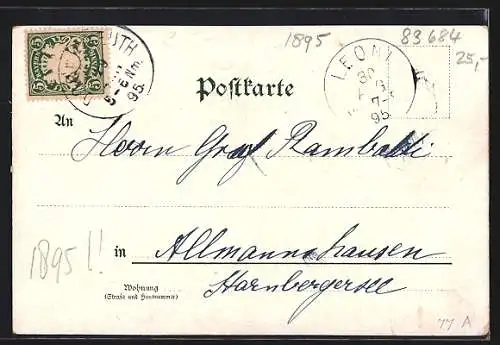 1895
83684
25,-
LEONI
30
6
7-
95
5-6 Nm.
95
Postkarte
An
Herrn Graf Rambaldi
in Allmannshausen
Starnbergersee
1895!!
Wohnung
(Straße und Hausnummer)
A